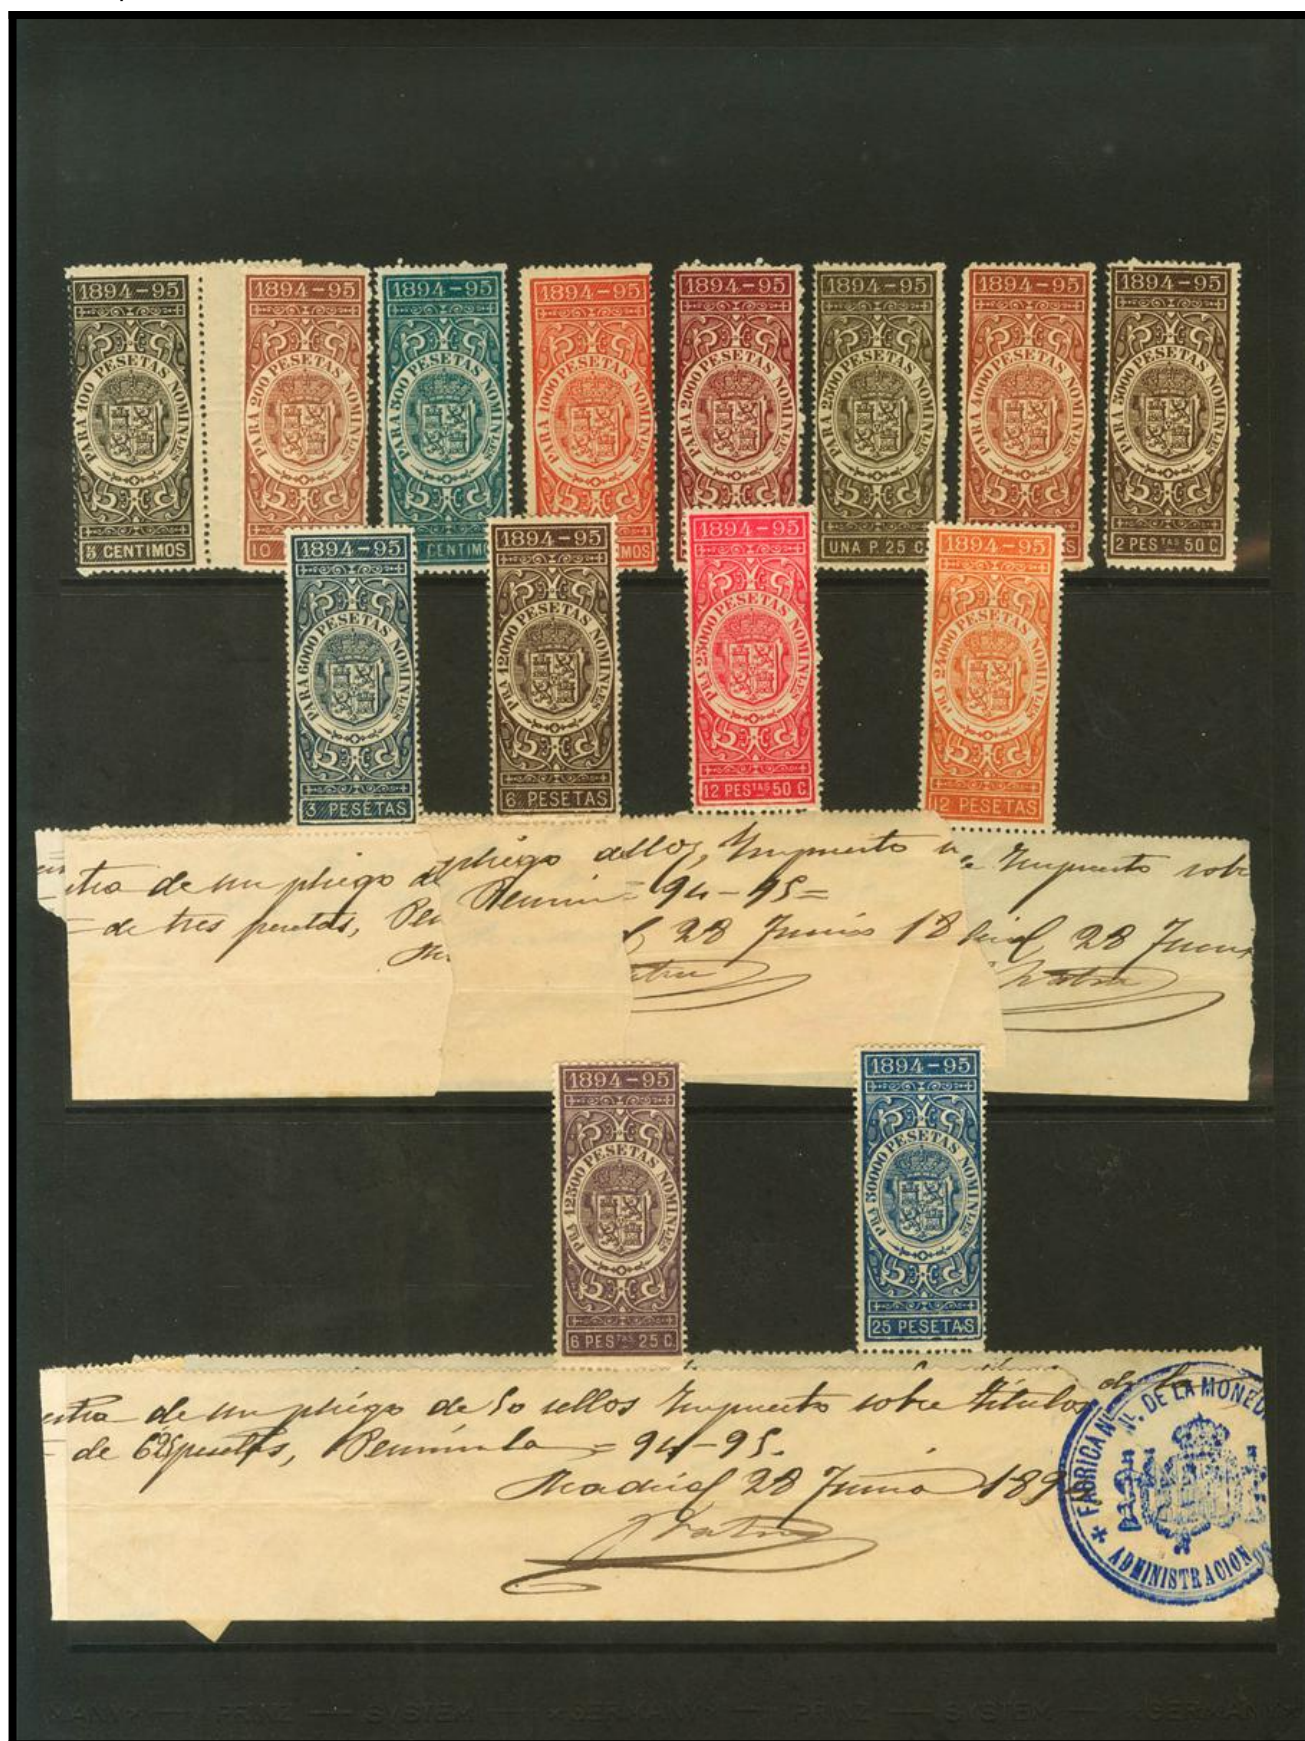 1894-95
PARA 100 PESETAS NOMINLES
5 CENTIMOS
1894-95
PARA 200 PESETAS NOMINLES
10
1894-95
PARA 500 PESETAS NOMINLES
CENTIM
1894-95
PARA 1000 PESETAS NOMINLES
MOS
1894-95
PARA 2000 PESETAS NOMINLES
1894-95
PARA 2500 PESETAS NOMINLES
UNA P. 25 C
1894-95
PARA 4000 PESETAS NOMINLES
S
1894-95
PARA 5000 PESETAS NOMINLES
2 PESTAS 50 C
1894-95
PARA 6000 PESETAS NOMINLES
3 PESETAS
1894-95
PRA 12000 PESETAS NOMINLES
6 PESETAS
1894-95
PRA 25000 PESETAS NOMINLES
12 PESTAS 50 C
1894-95
PRA 24000 PESETAS NOMINLES
12 PESETAS
stra de un pliego d
= de tres pesetas, Pen
pliego sellos, Impuesto
= 94-95=
28 Junio 18
Impuesto sobre
28 Junio
1894-95
PRA 12500 PESETAS NOMINLES
6 PESTAS 25 C.
1894-95
PRA 50000 PESETAS NOMINLES
25 PESETAS
estra de un pliego de 50 sellos Impuesto sobre títulos de la
= de 6'25 pesetas, Península = 94-95.
Madrid 28 Junio 189
FABRICA NL. DE LA MONED
ADMINISTRACION
PRINZ — SYSTEM — GERMANY — PRINZ — SYSTEM — GERMANY